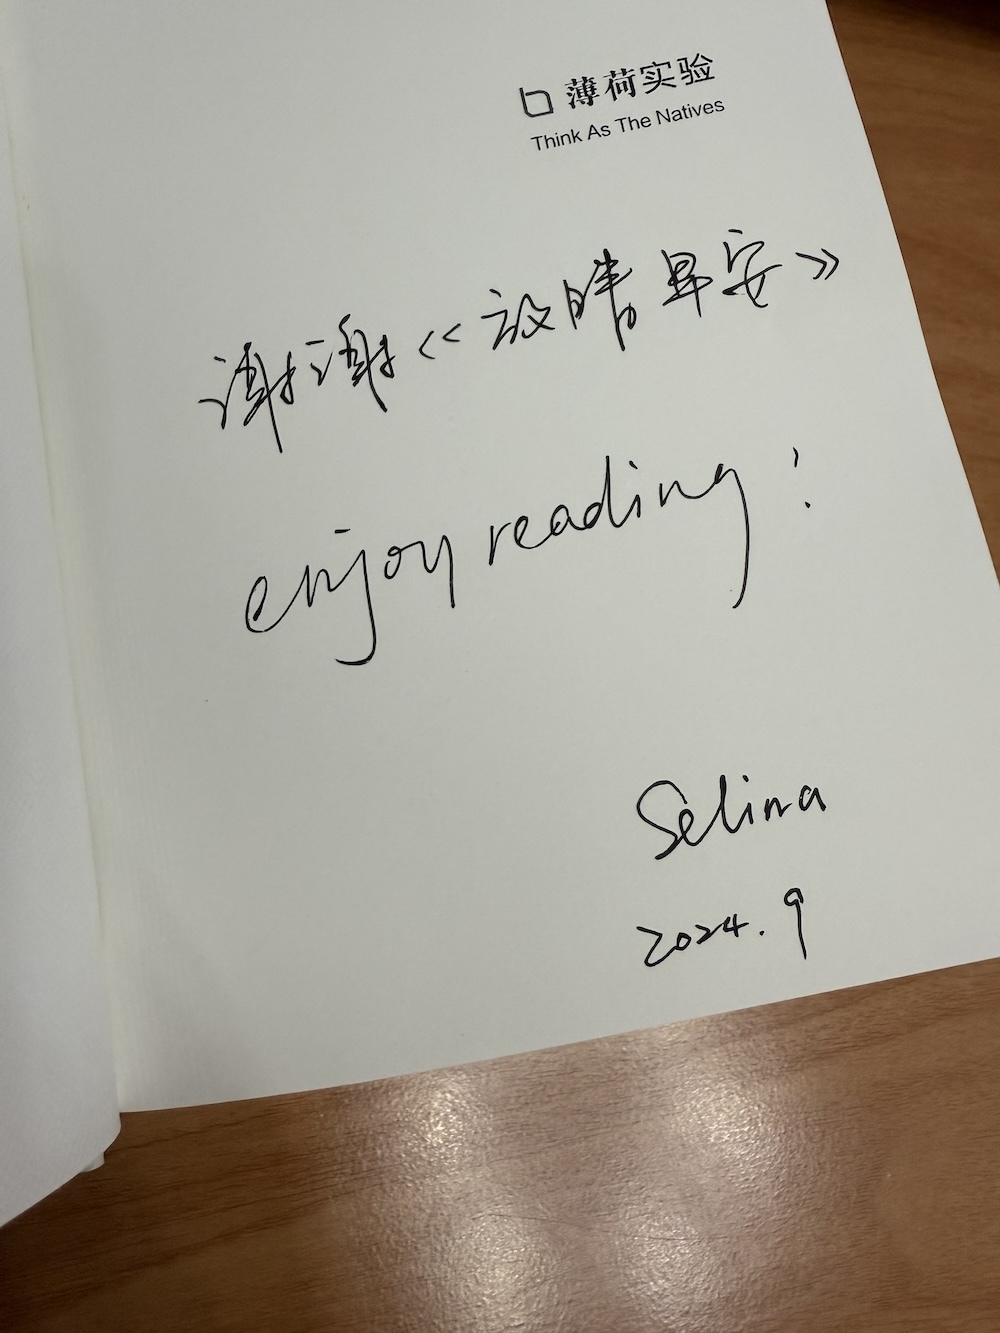 薄荷实验
Think As The Natives
谢谢《放晴早安》
enjoy reading!
Selina
2024.9